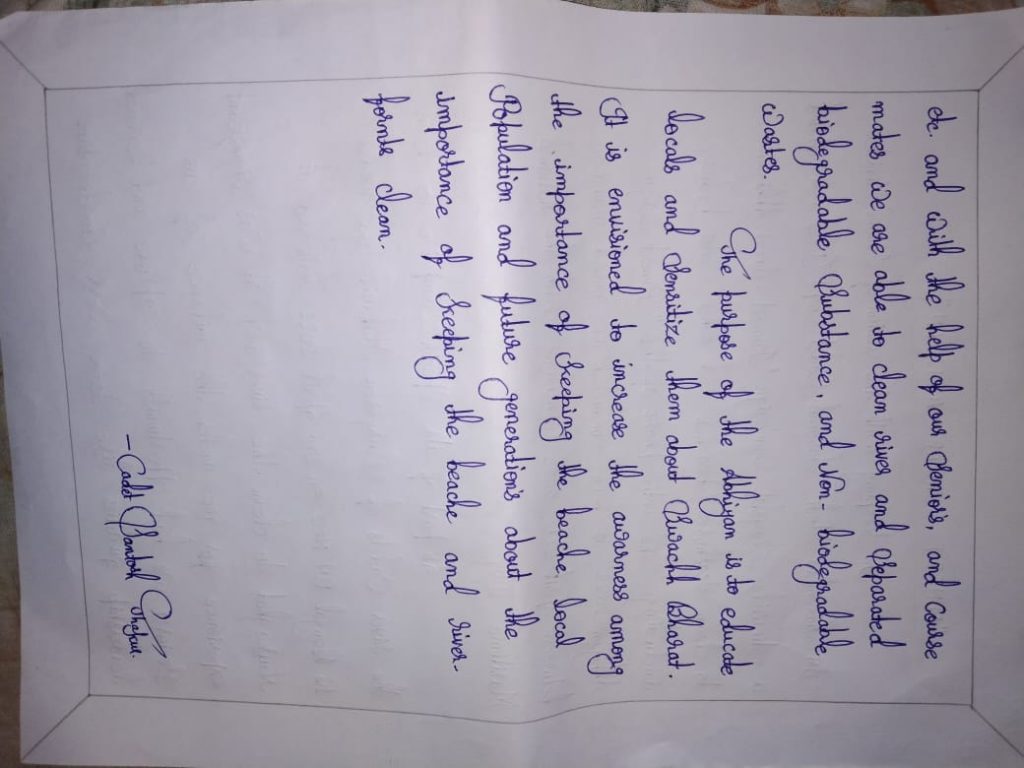 etc. and with the help of our Seniors, and Course
mates we are able to clean river and Separated
biodegradable Substance, and Non-biodegradable
wastes.
The purpose of the Abhiyan is to educate
locals and Sensitize them about Swachh Bharat.
It is envisioned to increase the awarness among
the importance of keeping the beache, local
Population and future generation's about the
importance of keeping the beache and river-
fornts clean.
- Cadet Santosh